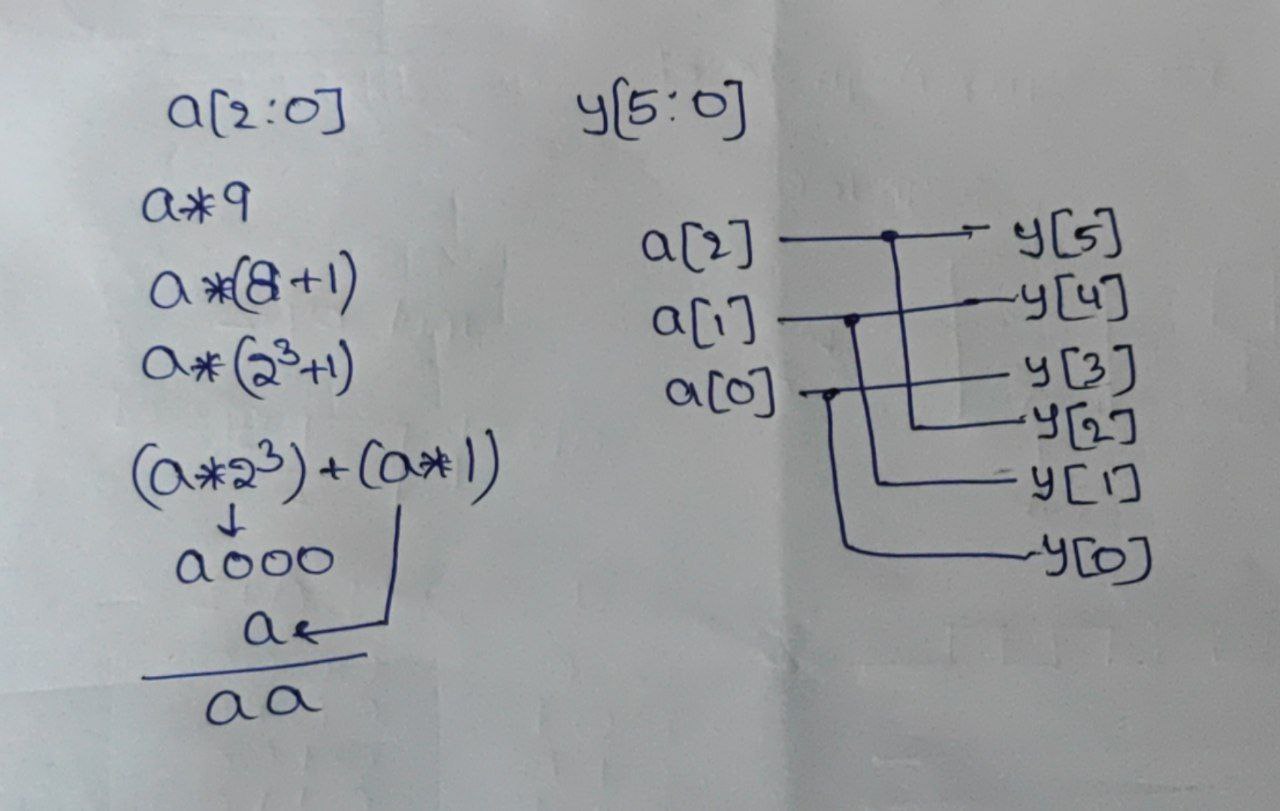 a[2:0]
y[5:0]
a*9
a*(8+1)
a*(2³+1)
(a*2³)+(a*1)
↓
a000
a←
aa
a[2]
y[5]
a[1]
y[4]
a[0]
y[3]
y[2]
y[1]
y[0]